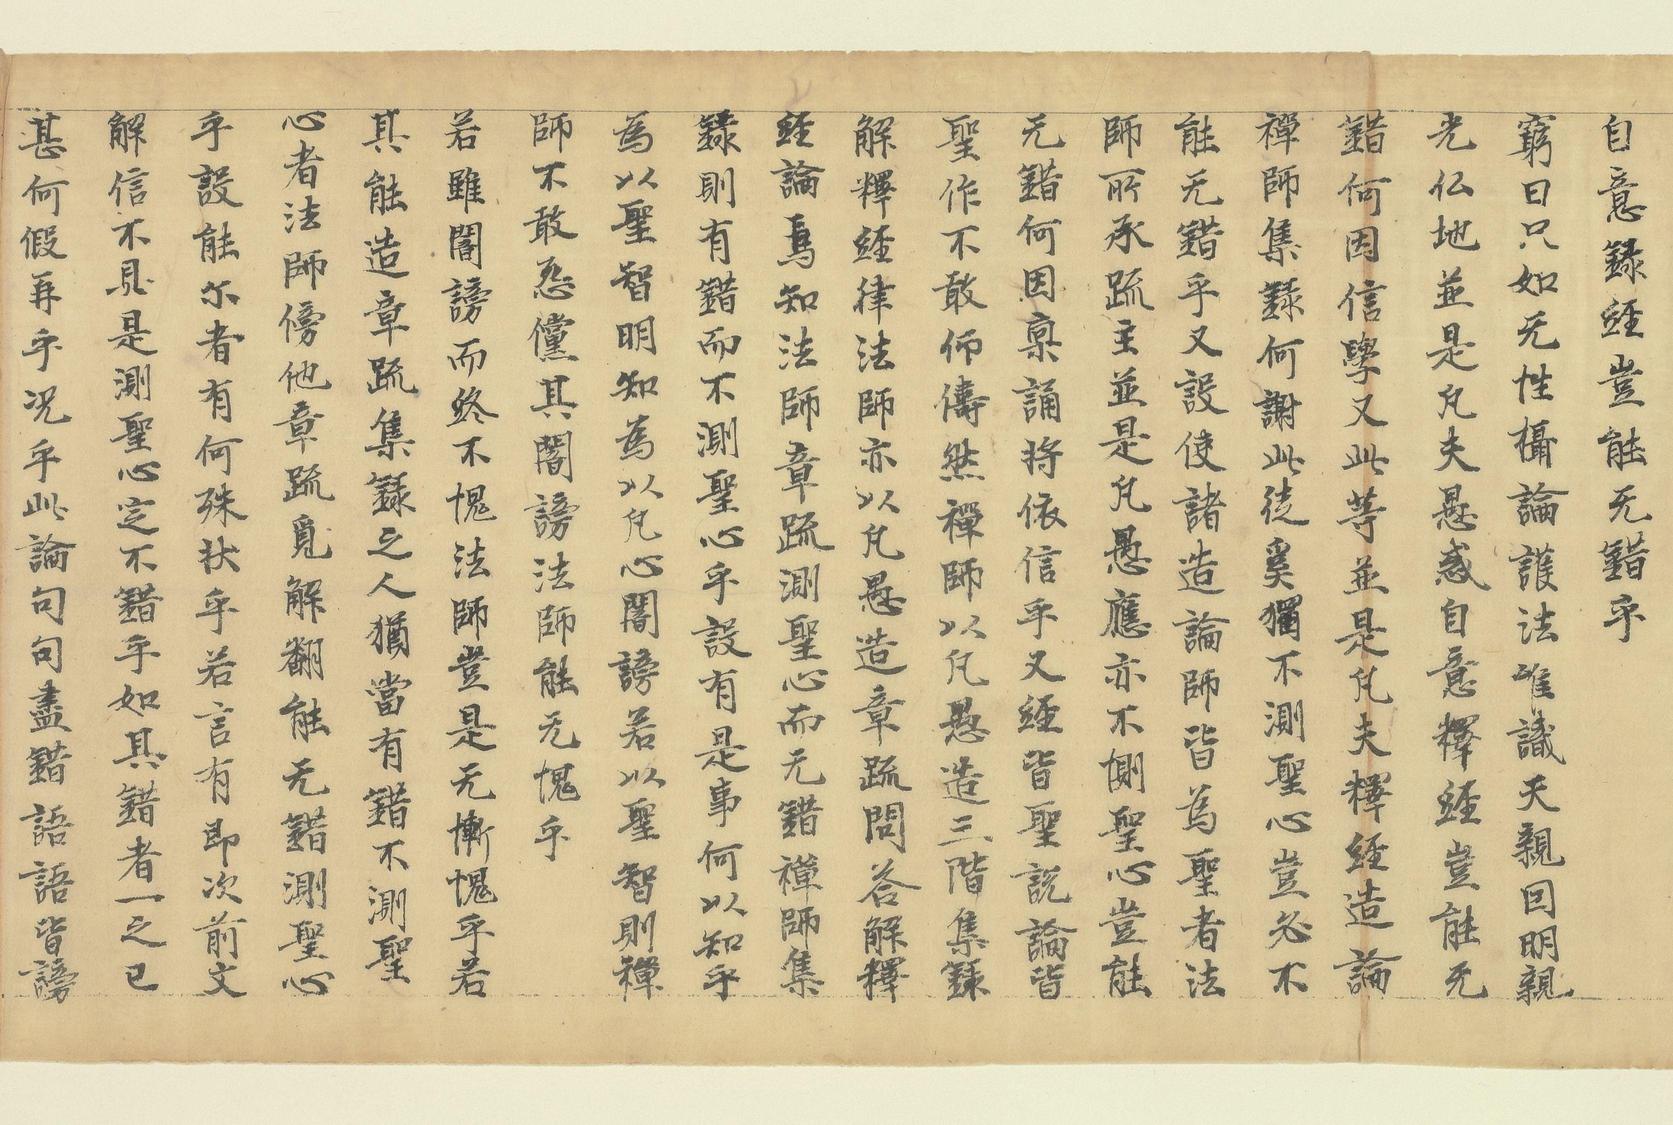 自意錄經豈能无錯乎
窮曰只如无性攝論護法唯識天親回明親
光仏地並是凡夫愚惑自意釋經豈能无
錯何因信學又此等並是凡夫釋經造論
禪師集錄何謝此徒奚獨不測聖心豈必不
能无錯乎又設使諸造論師皆為聖者法
師所承疏主並是凡愚應亦不惻聖心豈能
无錯何因稟誦將依信乎又經皆聖說論皆
聖作不敢仰儔然禪師以凡愚造三階集錄
解釋經律法師亦以凡愚造章疏問荅解釋
經論焉知法師章疏測聖心而无錯禪師集
錄則有錯而不測聖心乎設有是事何以知乎
為以聖智明知為以凡心闇謗若以聖智則禪
師不敢怨儻其闇謗法師能无愧乎
若雖闇謗而終不愧法師豈是无慚愧乎若
其能造章疏集錄之人猶當有錯不測聖
心者法師傍他章疏覓解翻能无錯測聖心
乎設能尔者有何殊狀乎若言有即次前文
解信不見是測聖心定不錯乎如其錯者一之已
甚何假再乎况乎此論句句盡錯語語皆謗